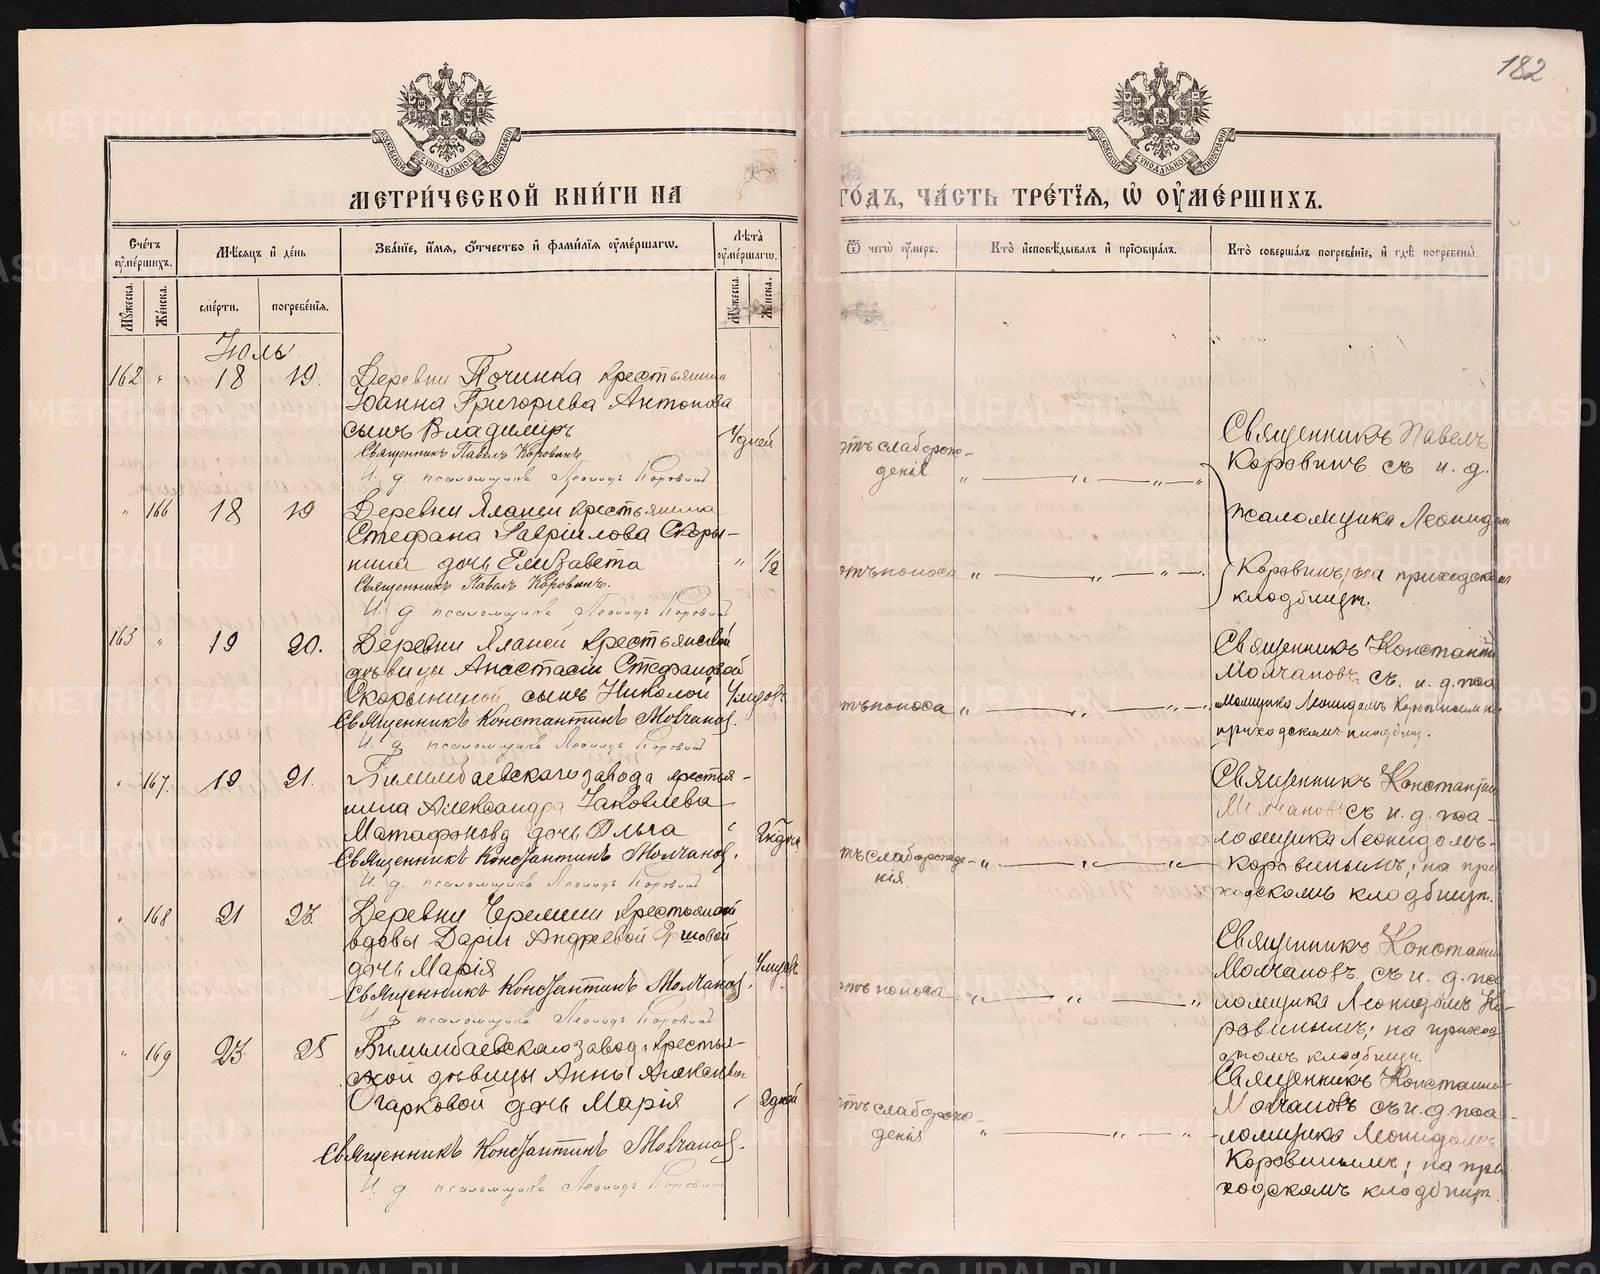 182
МЕТРИ́ЧЕСКОЙ КНИ́ГИ НА
ГО́ДЪ, ЧА́СТЬ ТРЕ́ТІЯ, Ѽ ОУ҆МЕ́РШИХЪ.
Сче́тъ оу҆ме́ршихъ.
Мѣ́сяцъ и҆ де́нь
Зва́нїе, и҆́мя, ѻ҆́тчество и҆ фами́лїя оу҆ме́ршагѡ.
Лѣ́та оу҆ме́ршагѡ.
Ѿ чегѡ̀ оу҆́меръ.
Кто̀ и҆сповѣ́дывалъ и҆ прїѡбща́лъ.
Кто̀ соверша́лъ погребе́нїе, и҆ гдѣ̀ погребены̀.
Мꙋ́жеска.
Же́нска.
сме́рти.
погребе́нїя.
Мꙋ́жеска.
Же́нска.
Іюль
162 " 18 19.
Деревни Починка крестьянина
Іоанна Григорьева Антонова
сынъ Владиміръ
Священникъ Павелъ Коровинъ
И. д. псаломщика Леонидъ Коровинъ
4 дней
отъ слаборож-
денія
Священникъ Павелъ
Коровинъ съ и. д.
" 166 18 19
Деревни Яланеи крестьянина
Стефана Гавріилова Скоры-
нина дочь Елизавета
Священникъ Павелъ Коровинъ.
И. д. псаломщика Леонидъ Коровинъ
" 1/2
отъ поноса
псаломщика Леонидом
Коровинымъ на приходском
кладбищѣ.
163 " 19 20.
Деревни Яланеи крестьянской
дѣвицы Анастасіи Стефановой
Скорыниной сынъ Николай
Священникъ Константинъ Молчановъ.
И. д. псаломщика Леонидъ Коровинъ
отъ поноса
Священникъ Константинъ
Молчановъ съ и. д. пса
ломщика Леонидомъ Коровинымъ на
приходскомъ кладбищ.
" 167. 19 21.
Билимбаевскаго завода крестья-
нина Александра Іаковлева
Матафонова дочь Ольга
Священникъ Константинъ Молчановъ.
И. д. псаломщика Леонидъ Коровинъ
отъ слаборожде-
нія.
Священникъ Константин
Молчановъ съ и. д. пса-
ломщика Леонидомъ
Коровинымъ; на при
ходскомъ кладбищѣ.
" 168 21 23
Деревни Черемши крестьянской
вдовы Дарьи Андреевой Ершовой
дочь Марія
Священникъ Константинъ Молчановъ.
И. д. псаломщика Леонидъ Коровинъ
отъ поноса
Священникъ Константин
Молчановъ съ и. д. пса
ломщика Леонидомъ Ко-
ровинымъ; на приход
скомъ кладбищѣ
" 169 23 25
Билимбаевскаго завода крестья-
ской дѣвицы Анны Алексѣев
Огарковой дочь Марія
Священникъ Константинъ Молчановъ.
И. д. псаломщика Леонидъ Коровинъ
2 дней
отъ слаборож-
денія
Священникъ Константин
Молчановъ съ и. д. пса-
ломщика Леонидомъ
Коровинымъ; на при
ходскомъ кладбищѣ.
METRIKI.GASO-URAL.RU